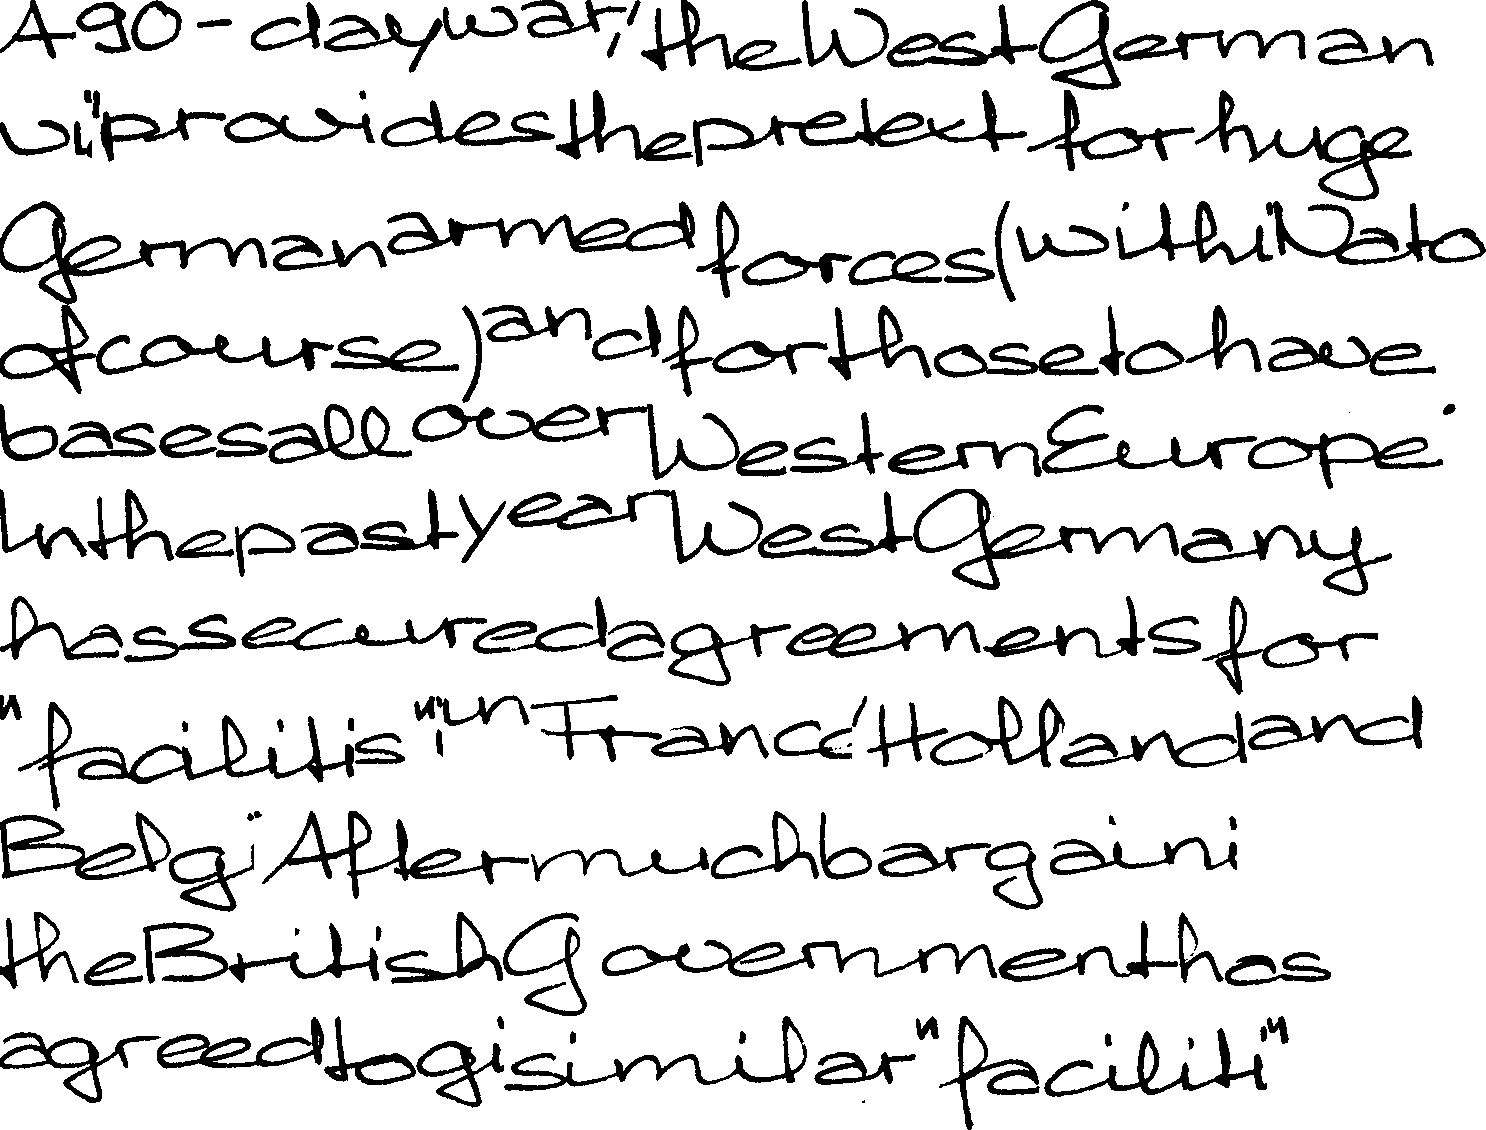 A 90 - day war, the West German
vi" provides the pretext for huge
German armed forces (withi Nato
of course) and for those to have
bases all over Western Europe.
In the past year West Germany
has secured agreements for
"facilitis", in France, Holland and
Belgi After much bargaini
the British Government has
agreed to gi similar "faciliti"